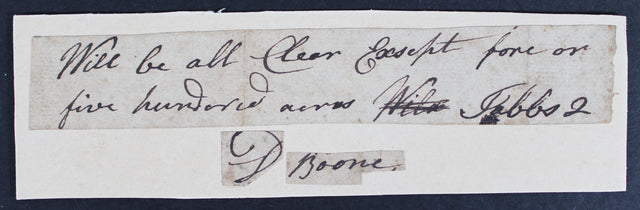 Will be all Clear Exsept fore or
five hundored acres Tibbs 2
D Boone.